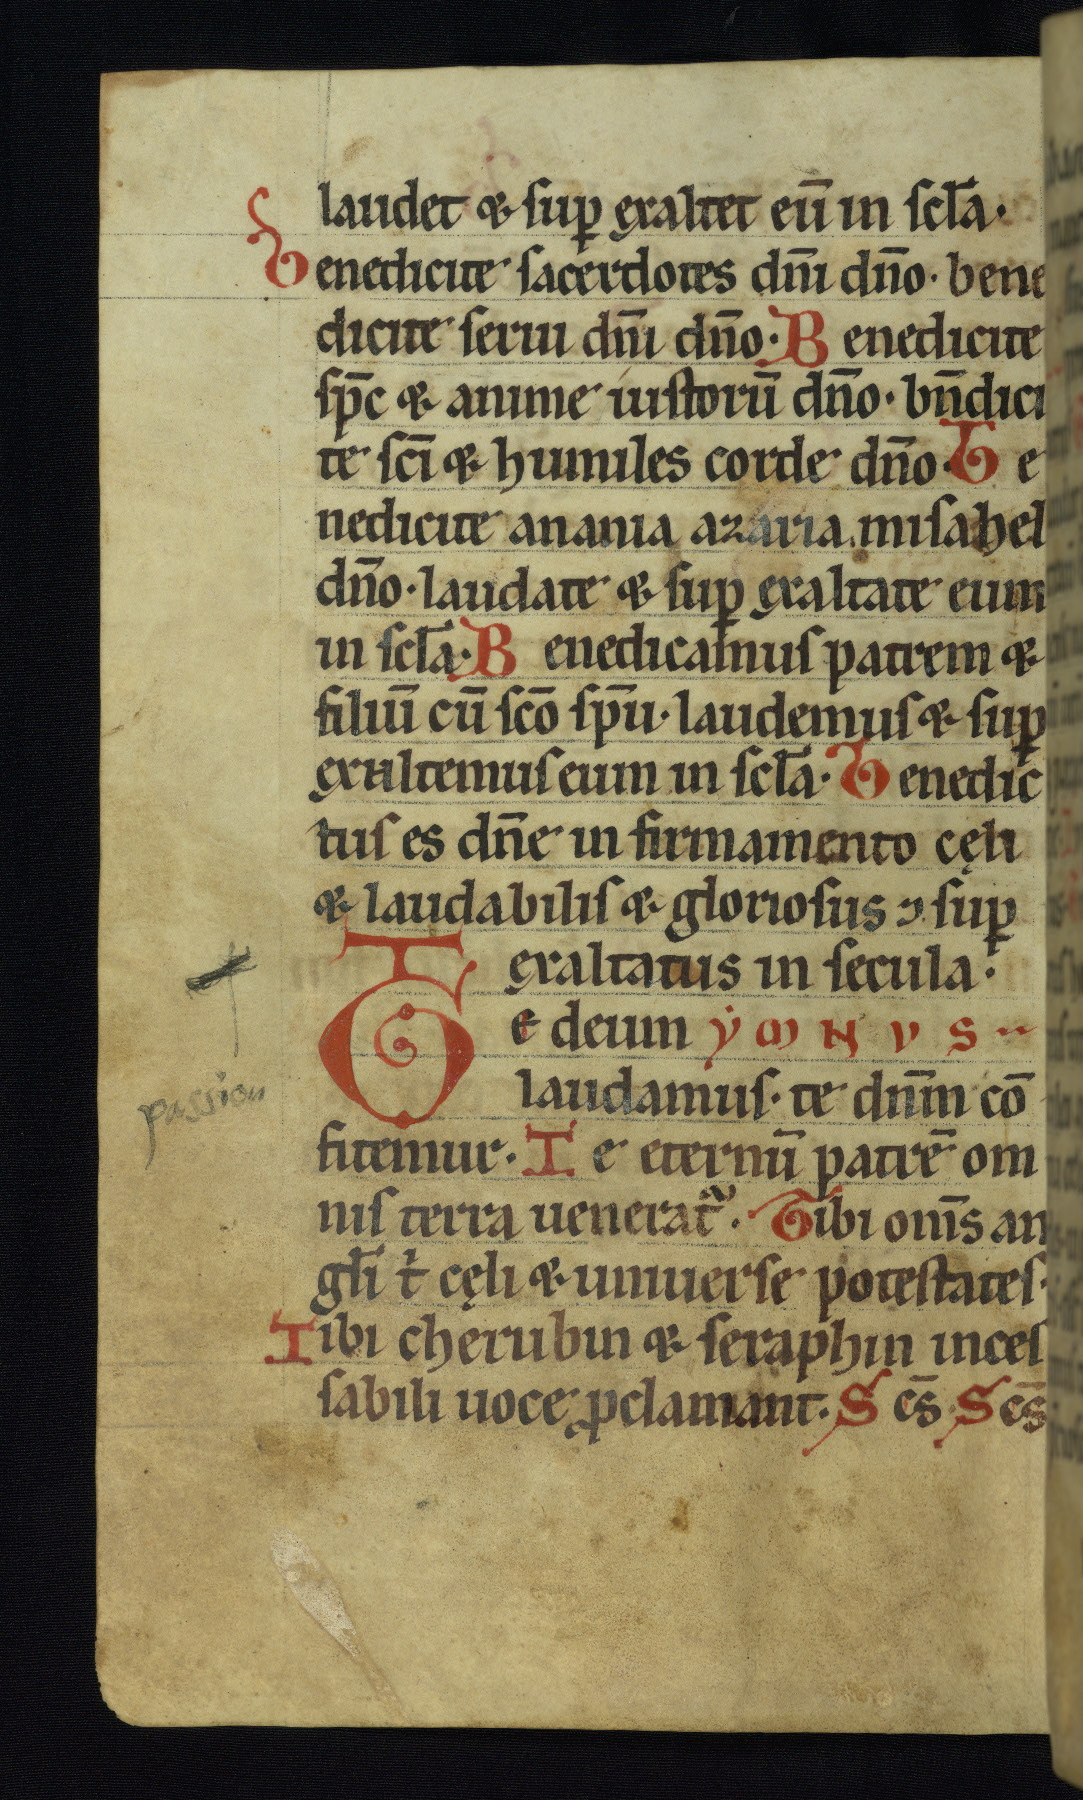 laudet & sup̱ exaltet eū in scl̄a·
Benedicite sacerdotes dn̄i dn̄o· bene
dicite serui dn̄i dn̄o· Benedicite
sp̄c & anime iustorū dn̄o· bn̄dici
te sc̄i & humiles corde dn̄o· Be
nedicite anania azaria misahel
dn̄o· laudate & sup̱ exaltate eum
in scl̄a· Benedicamus patrem &
filiū cū sc̄o sp̄u· laudemus & sup̱
exaltemus eum in scl̄a· Benedic
tus es dn̄e in firmamento cęli
& laudabilis & gloriosus ⁊ sup̱
exaltatus in secula·
Te deum ẏMNVS
laudamus· te dn̄m cō
fitemur· Te eternū patrē om
nis terra uenerat᷑· Tibi om̄s an
gl̄i t̄ cęli & uniuerse potestates·
Tibi cherubin & seraphin inces
sabili uoce ꝓclamant· Sc̄s· Sc̄s
passion